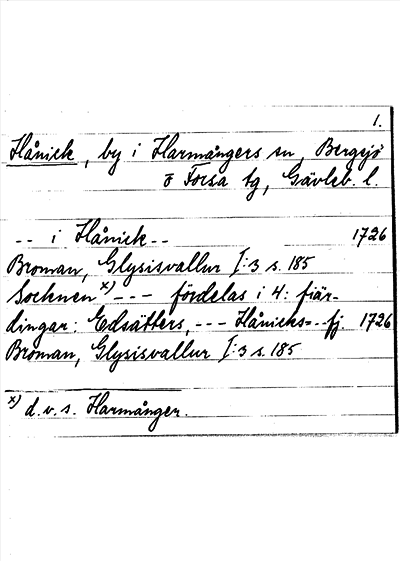 1.
Hånick, by i Harmångers sn, Bergsjö
o Forsa tg, Gävleb. l.
-- i Hånick-- 1726
Broman, Glysisvallur I:3 s. 185
Socknen x) --- fördelas i 4: fiär-
dingar: Edsätters, --- Hånicks=--fj. 1726
Broman, Glysisvallur I:3 s. 185
x) d.v.s. Harmånger.